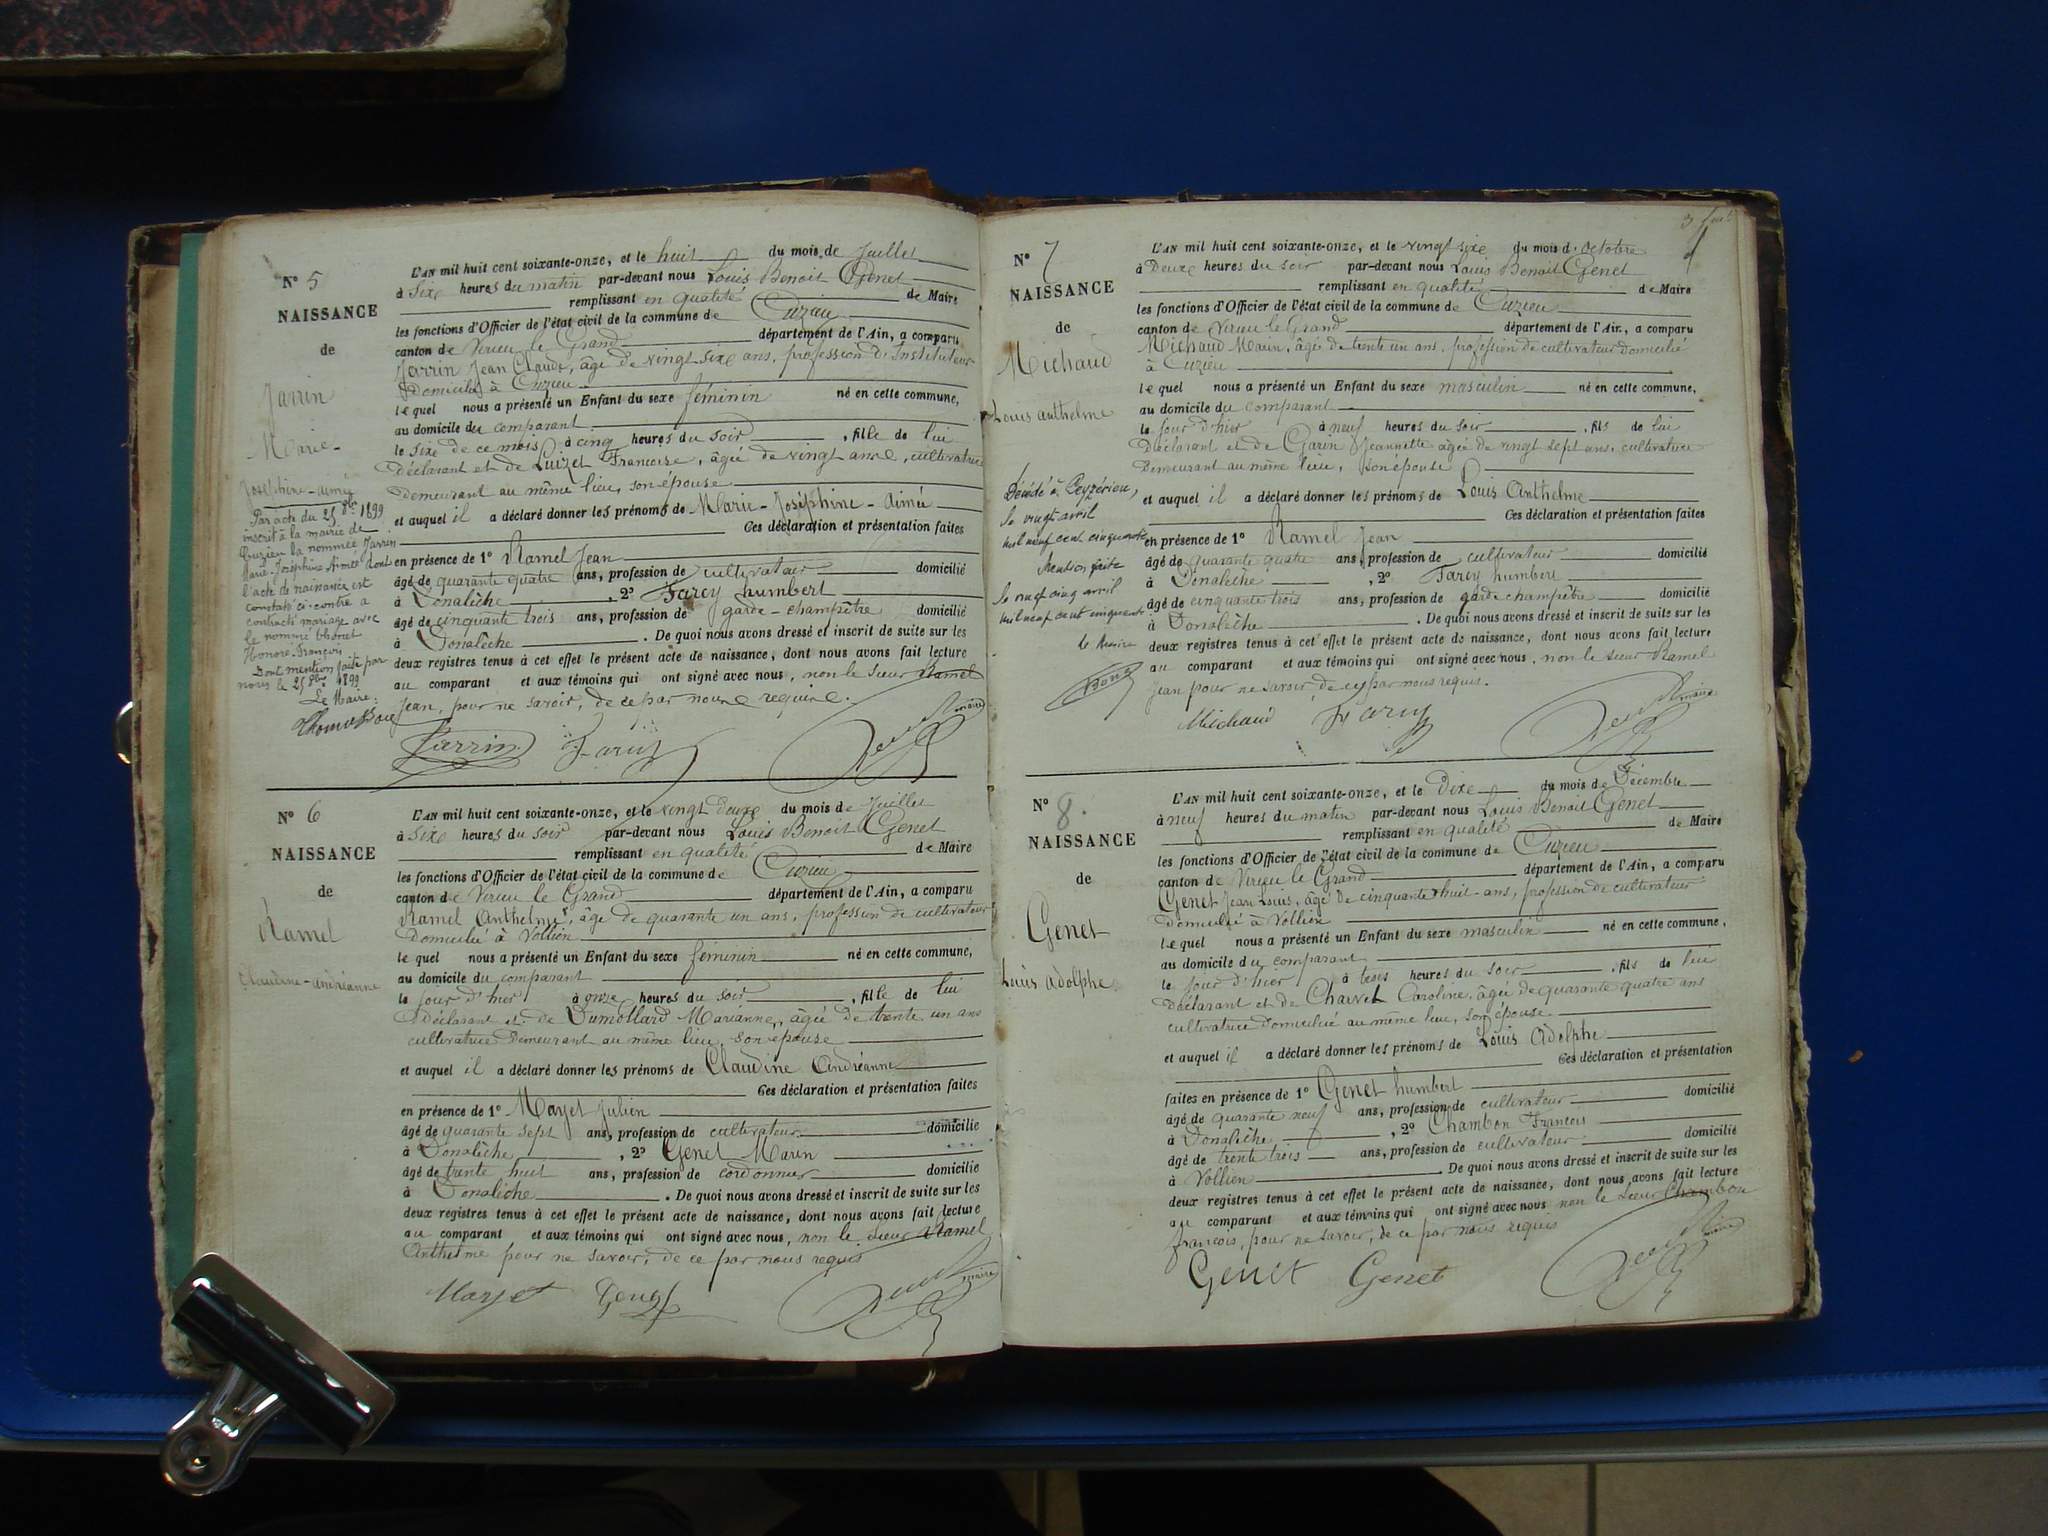 N° 5
NAISSANCE
de
Jarrin
Marie-
Joséphine-aimée
Par acte du 25 8bre 1899
inscrit à la mairie de
Cuzieu la nommée Jarrin
Marie-Joséphine Aimée dont
l'acte de naissance est
constaté ci-contre a
contracté mariage avec
le nommé
Honoré-François
Dont mention faite par
nous le 25 8bre 1899
Le Maire:
L'AN mil huit cent soixante-onze, et le huit du mois de Juillet
à Sixe heures du matin par-devant nous Louis Benoit Genet
remplissant en qualité de Maire
les fonctions d'Officier de l'état civil de la commune de Cuzieu
canton de Virieu le Grand département de l'Ain, a comparu
Jarrin Jean Claude, âgé de vingt sixe ans, profession d'Instituteur
Domicilié à Cuzieu
lequel nous a présenté un Enfant du sexe féminin né en cette commune,
au domicile du comparant
le sixe de ce mois à cinq heures du soir, fille de lui
Déclarant et de Luizet Francoise, âgée de vingt ans, cultivatrice
Demeurant au même lieu, son épouse
et auquel il a déclaré donner les prénoms de Marie-Joséphine-aimée
Ces déclaration et présentation faites
en présence de 1° Ramel Jean
âgé de quarante quatre ans, profession de cultivateur domicilié
à Sonalèche, 2° Farcy humbert
âgé de cinquante trois ans, profession de garde-champêtre domicilié
à Sonalèche. De quoi nous avons dressé et inscrit de suite sur les
deux registres tenus à cet effet le présent acte de naissance, dont nous avons fait lecture
au comparant et aux témoins qui ont signé avec nous, non le sieur Ramel
Jean, pour ne savoir, de ce par nous requis.
Jarrin Farcy maire
N° 6
NAISSANCE
de
Ramel
Claudine-andréanne
L'AN mil huit cent soixante-onze, et le vingt deuxe du mois de Juillet
à Sixe heures du soir par-devant nous Louis Benoit Genet
remplissant en qualité de Maire
les fonctions d'Officier de l'état civil de la commune de Cuzieu
canton de Virieu le Grand département de l'Ain, a comparu
Ramel Anthelme, âgé de quarante un ans, profession de cultivateur
Domicilié à Vollien
lequel nous a présenté un Enfant du sexe féminin né en cette commune,
au domicile du comparant
le jour d'hier à onze heures du soir, fille de lui
Déclarant et de Dumollard Marianne, âgée de trente un ans
cultivatrice Demeurant au même lieu, son épouse
et auquel il a déclaré donner les prénoms de Claudine Andréanne
Ces déclaration et présentation faites
en présence de 1° Mayet Julien
âgé de quarante sept ans, profession de cultivateur domicilié
à Sonalèche, 2° Genet Marin
âgé de trente huit ans, profession de cordonnier domicilié
à Sonalèche. De quoi nous avons dressé et inscrit de suite sur les
deux registres tenus à cet effet le présent acte de naissance, dont nous avons fait lecture
au comparant et aux témoins qui ont signé avec nous, non le sieur Ramel
Anthelme pour ne savoir, de ce par nous requis
Mayet Genet maire
N° 7
NAISSANCE
de
Michaud
Louis anthelme
Décédé à Ceyzérieu,
le vingt avril
mil neuf cent cinquante
Mention faite
le vingt cinq avril
mil neuf cent cinquante
le Maire
L'AN mil huit cent soixante-onze, et le vingt sixe du mois d'octobre
à Deuxe heures du soir par-devant nous Louis Benoit Genet
remplissant en qualité de Maire
les fonctions d'Officier de l'état civil de la commune de Cuzieu
canton de Virieu le Grand département de l'Ain, a comparu
Michaud Marin, âgé de trente un ans, profession de cultivateur Domicilié
à Cuzieu
lequel nous a présenté un Enfant du sexe masculin né en cette commune,
au domicile du comparant
le jour d'hier à neuf heures du soir, fils de lui
Déclarant et de Garin Jeannette âgée de vingt sept ans, cultivatrice
Demeurant au même lieu, son épouse
et auquel il a déclaré donner les prénoms de Louis Anthelme
Ces déclaration et présentation faites
en présence de 1° Ramel Jean
âgé de quarante quatre ans, profession de cultivateur domicilié
à Sonalèche, 2° Farcy humbert
âgé de cinquante trois ans, profession de garde champêtre domicilié
à Sonalèche. De quoi nous avons dressé et inscrit de suite sur les
deux registres tenus à cet effet le présent acte de naissance, dont nous avons fait lecture
au comparant et aux témoins qui ont signé avec nous, non le sieur Ramel
Jean pour ne savoir, de ce par nous requis.
Michaud Farcy maire
N° 8.
NAISSANCE
de
Genet
Louis adolphe
L'AN mil huit cent soixante-onze, et le Dixe du mois de Décembre
à neuf heures du matin par-devant nous Louis Benoit Genet
remplissant en qualité de Maire
les fonctions d'Officier de l'état civil de la commune de Cuzieu
canton de Virieu le Grand département de l'Ain, a comparu
Genet Jean Louis, âgé de cinquante huit-ans, profession de cultivateur
Domicilié à Vollien
lequel nous a présenté un Enfant du sexe masculin né en cette commune,
au domicile du comparant
le jour d'hier à trois heures du soir, fils de lui
Déclarant et de Charvet Caroline, âgée de quarante quatre ans
cultivatrice Domiciliée au même lieu, son épouse
et auquel il a déclaré donner les prénoms de Louis Adolphe
Ces déclaration et présentation
faites en présence de 1° Genet humbert
âgé de quarante neuf ans, profession de cultivateur domicilié
à Sonalèche, 2° Chambon Francois
âgé de trente trois ans, profession de cultivateur domicilié
à Vollien. De quoi nous avons dressé et inscrit de suite sur les
deux registres tenus à cet effet le présent acte de naissance, dont nous avons fait lecture
au comparant et aux témoins qui ont signé avec nous non le sieur Chambon
francois, pour ne savoir, de ce par nous requis
Genet Genet maire